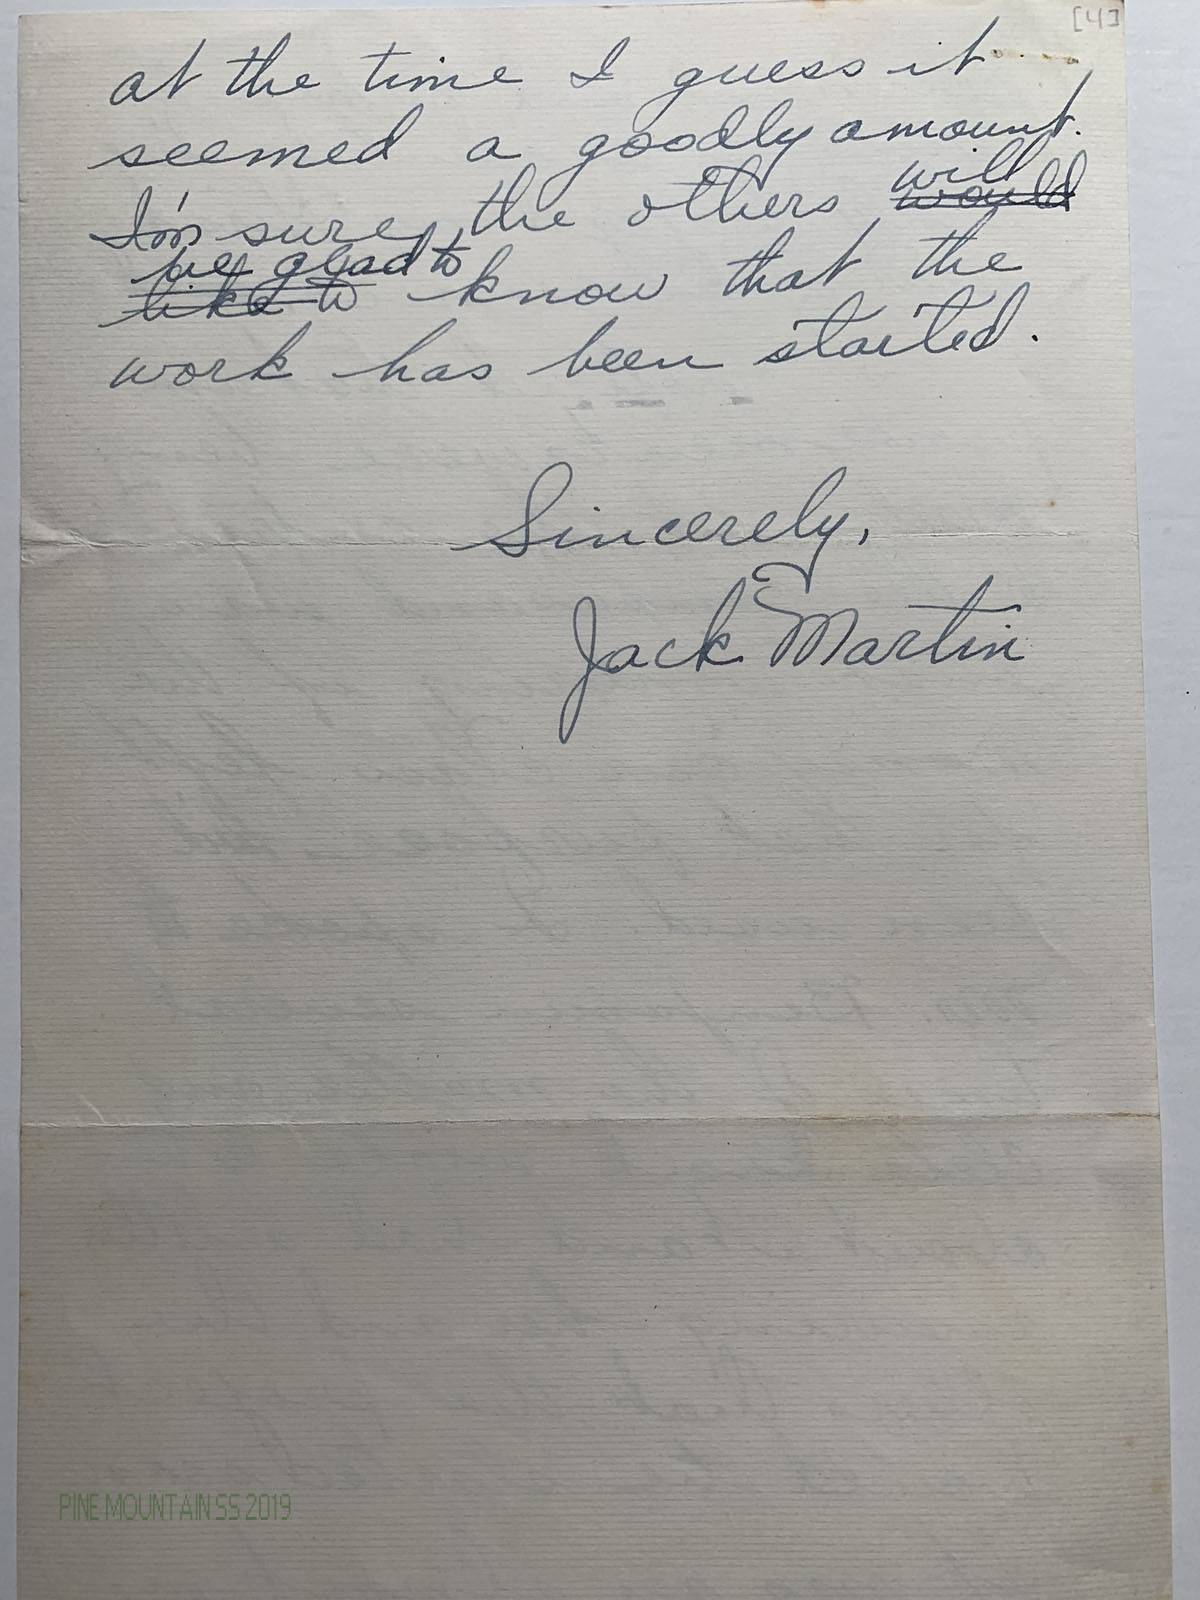 [4]
at the time I guess it
seemed a goodly amount.
I'm sure, the others would will
like to be glad to know that the
work has been started.
Sincerely,
Jack Martin
PINE MOUNTAIN SS 2019